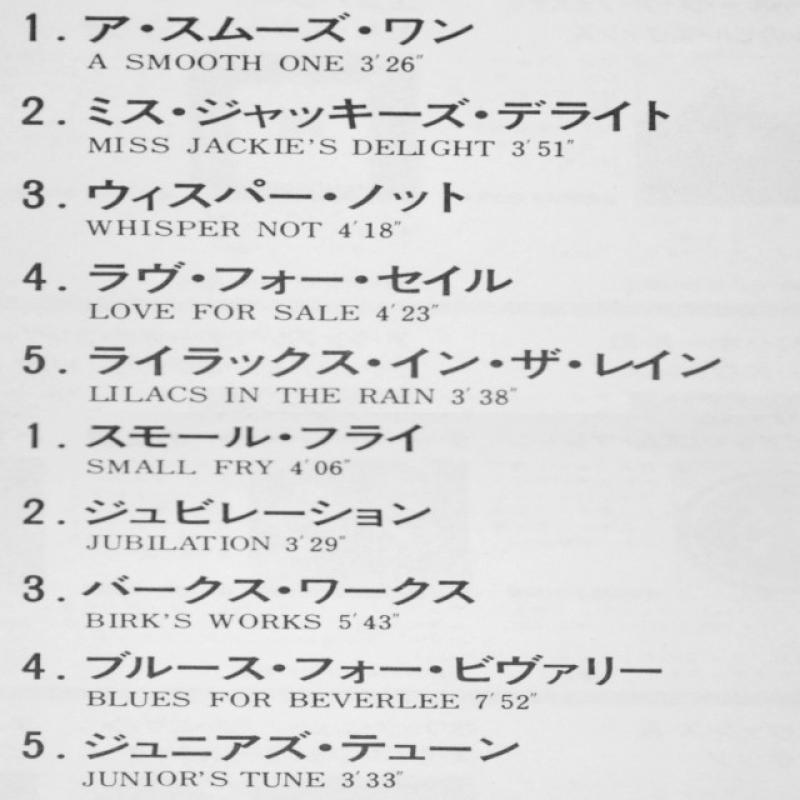 1. ア・スムーズ・ワン
A SMOOTH ONE 3′26″
2. ミス・ジャッキーズ・デライト
MISS JACKIE'S DELIGHT 3′51″
3. ウィスパー・ノット
WHISPER NOT 4′18″
4. ラヴ・フォー・セイル
LOVE FOR SALE 4′23″
5. ライラックス・イン・ザ・レイン
LILACS IN THE RAIN 3′38″
1. スモール・フライ
SMALL FRY 4′06″
2. ジュビレーション
JUBILATION 3′29″
3. バークス・ワークス
BIRK'S WORKS 5′43″
4. ブルース・フォー・ビヴァリー
BLUES FOR BEVERLEE 7′52″
5. ジュニアズ・テューン
JUNIOR'S TUNE 3′33″